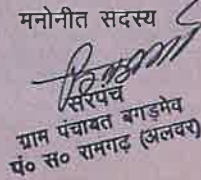 मनोनीत सदस्य
सरपंच
ग्राम पंचायत बगड़मेव
पं० स० रामगढ़ (अलवर)